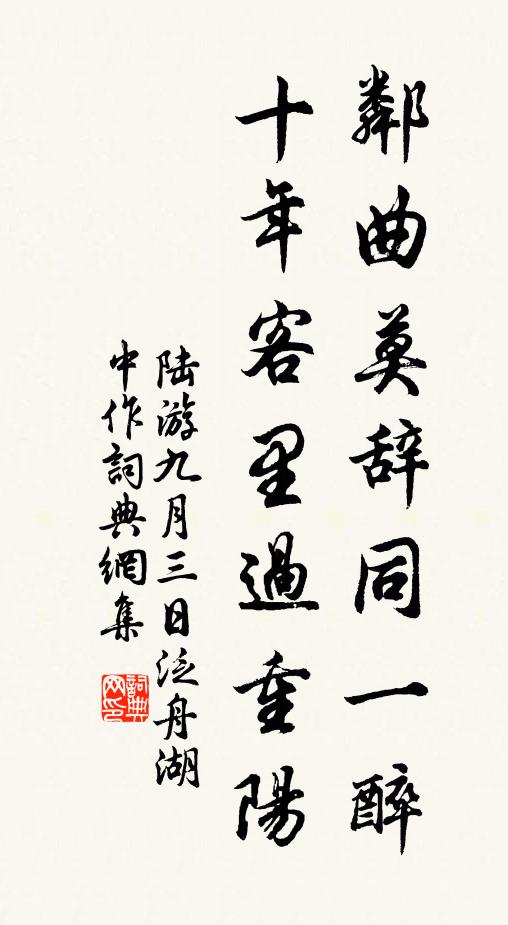 鄰曲莫辞同一醉
十年客里過重陽
陸游九月三日泛舟湖
中作詞典網集
詞典
网印